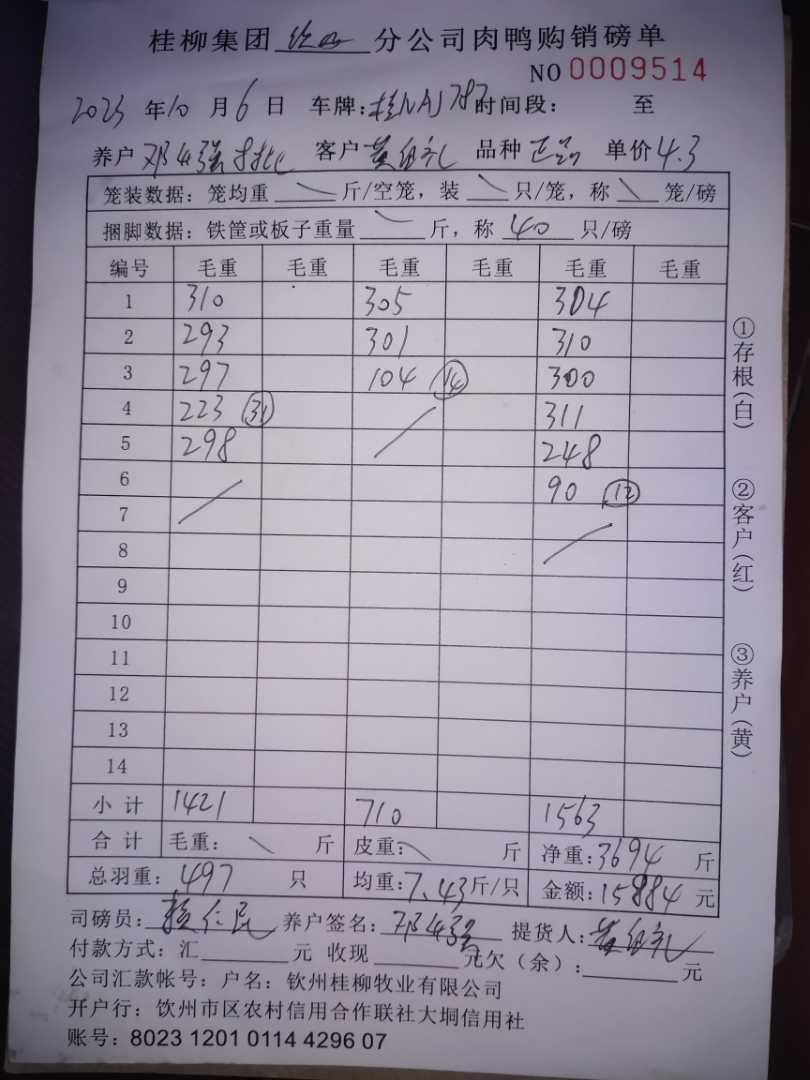 桂柳集团 分公司肉鸭购销磅单
NO 0009514
2023 年 10 月 6 日 车牌: 时间段: 至
养户 邓 强 客户 黄 礼 品种 正品 单价 4.3
笼装数据: 笼均重 斤/空笼, 装 只/笼, 称 笼/磅
捆脚数据: 铁筐或板子重量 斤, 称 40 只/磅
编号 毛重 毛重 毛重 毛重 毛重 毛重
1 310 305 304
2 293 301 310
3 297 104 (14) 300
4 223 (31) 311
5 298 248
6 90 (12)
7
8
9
10
11
12
13
14
小计 1421 710 1563
合计 毛重: 斤 皮重: 斤 净重: 3694 斤
总羽重: 497 只 均重: 7.43 斤/只 金额: 15884 元
司磅员: 仁民 养户签名: 邓 强 提货人: 黄 礼
付款方式: 汇 元 收现 元欠(余): 元
公司汇款帐号: 户名: 钦州桂柳牧业有限公司
开户行: 钦州市区农村信用合作联社大垌信用社
账号: 8023 1201 0114 4296 07
①存根(白)
②客户(红)
③养户(黄)